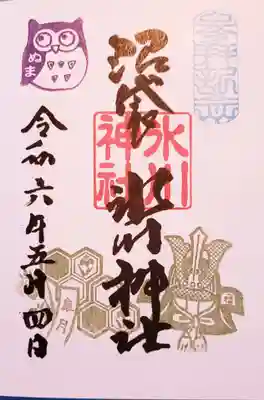 沼袋
氷川神社
氷川
神社
令和六年五月四日
ぬま
皐月